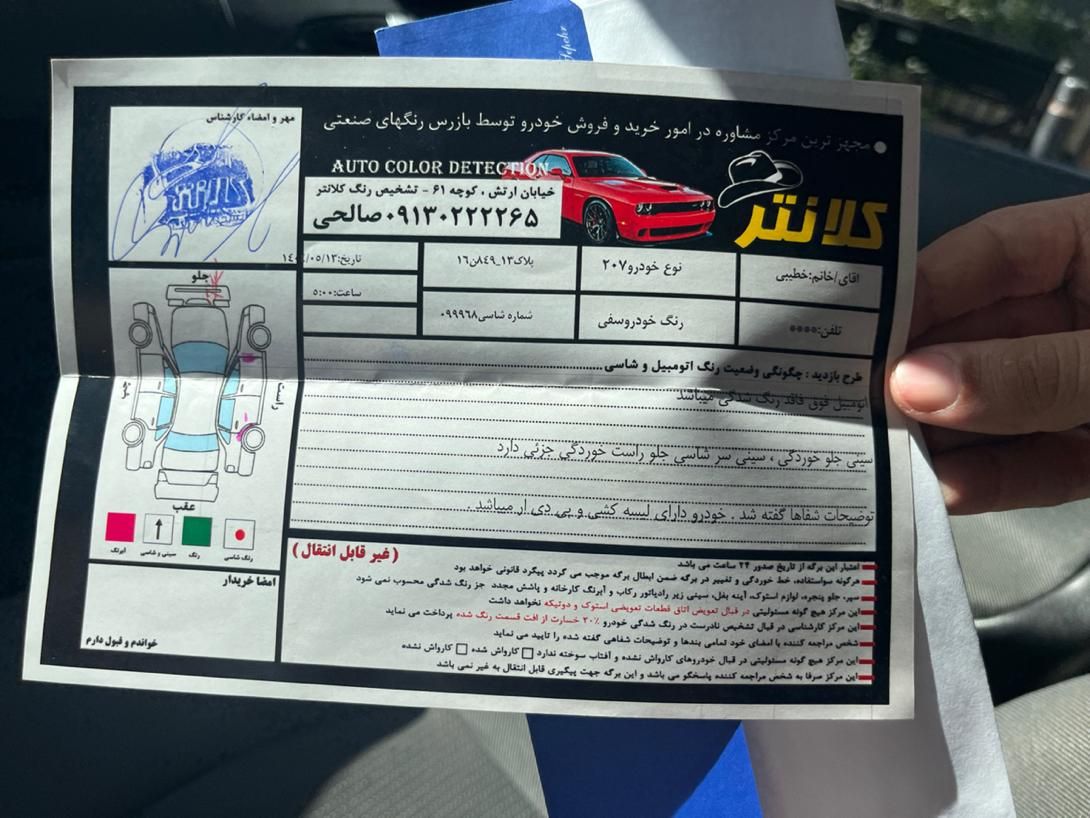 مجهز ترین مرکز مشاوره در امور خرید و فروش خودرو توسط بازرس رنگهای صنعتی
کلانتر
AUTO COLOR DETECTION
خیابان ارتش ، کوچه ۶۱ - تشخیص رنگ کلانتر
۰۹۱۳۰۲۲۲۲۶۵ صالحی
مهر و امضاء کارشناس
کلانتر
اقای/خانم:خطیبی
نوع خودرو۲۰۷
پلاک۱۳_۸۴۹ن۱۶
تاریخ:۰۵/۱۳/
ساعت:۵:۰۰
تلفن:****
رنگ خودروسفی
شماره شاسی۰۹۹۹۶۸
طرح بازدید : چگونگی وضعیت رنگ اتومبیل و شاسی
اتومبیل فوق فاقد رنگ شدگی میباشد
سینی جلو خوردگی ، سینی سر شاسی جلو راست خوردگی جزئی دارد
توضیحات شفاها گفته شد . خودرو دارای لیسه کشی و پی دی ار میباشد .
جلو
راست
چپ
عقب
رنگ شاسی
رنگ
سینی و شاسی
آبرنگ
امضا خریدار
خواندم و قبول دارم
(غیر قابل انتقال)
اعتبار این برگه از تاریخ صدور ۲۴ ساعت می باشد
هرگونه سواستفاده، خط خوردگی و تغییر در برگه ضمن ابطال برگه موجب می گردد پیگرد قانونی خواهد بود
سپر، جلو پنجره، لوازم استوک، آینه بغل، سینی زیر رادیاتور رکاب و آبرنگ کارخانه و پاشش مجدد جز رنگ شدگی محسوب نمی شود
این مرکز هیچ گونه مسئولیتی در قبال تعویض اتاق قطعات تعویضی استوک و دوتیکه نخواهد داشت
این مرکز کارشناسی در قبال تشخیص نادرست در رنگ شدگی خودرو ۲۰٪ خسارت از افت قسمت رنگ شده پرداخت می نماید
شخص مراجعه کننده با امضای خود تمامی بندها و توضیحات شفاهی گفته شده را تایید می نماید
این مرکز هیچ گونه مسئولیتی در قبال خودروهای کارواش نشده و آفتاب سوخته ندارد □ کارواش شده □ کارواش نشده
این مرکز صرفا به شخص مراجعه کننده پاسخگو می باشد و این برگه جهت پیگیری قابل انتقال به غیر نمی باشد